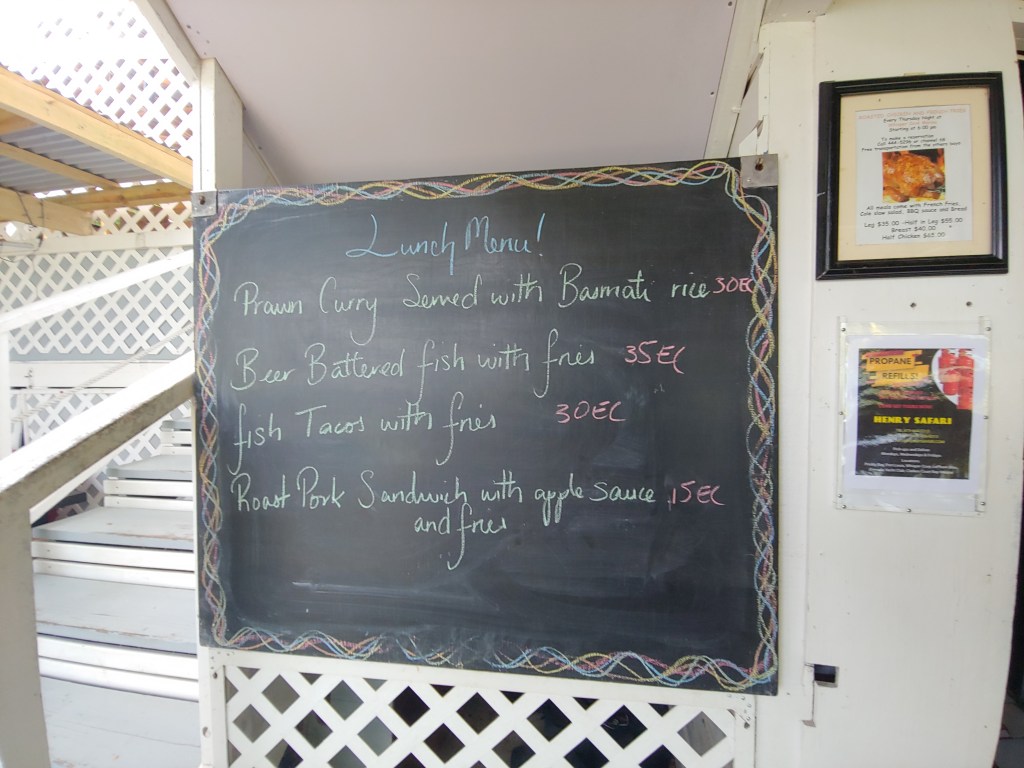 Lunch Menu!
Prawn Curry Served with Basmati rice 30EC
Beer Battered fish with fries 35EC
fish Tacos with fries 30EC
Roast Pork Sandwich with apple sauce 15EC
and fries
Every Thursday Night at
Starting at 6:00 pm
To make a reservation
All meals come with French Fries,
Cole slaw salad, BBQ sauce and Bread
Leg $35.00 -Half n Leg $55.00
Breast $40.00
Half Chicken $65.00
PROPANE
REFILLS
HENRY SAFARI